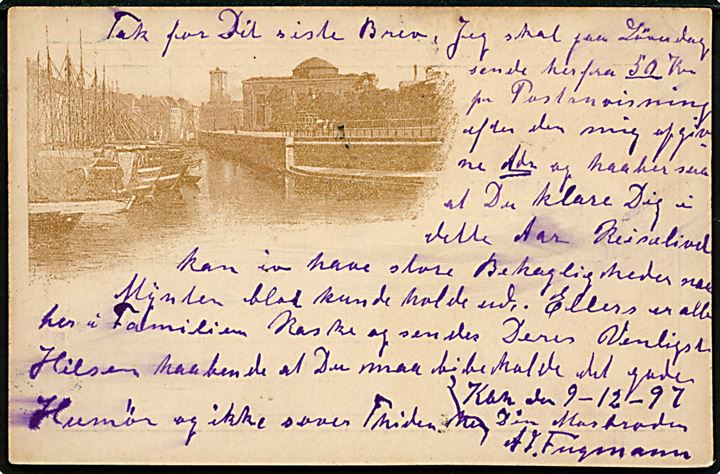 Tak for Dit siste Brev, Jeg skal paa Löverdag
sende herfra 50 Kr
pr Postanvisning
efter den mig opgiv
ne Adr og haaber saa
at Du klare Dig i
dette Aar Reiselivet
kan jo have store Behagligheder naar
Mynten blot kunde holde ud. Ellers er alle
her i Familien Raske og sendes Deres Venligste
Hilsen haabende at Du maa bibeholde det gode
Humör og ikke sover Thiden
Kbh den 9-12-97
Din Morbroder
A.J. Fugmann